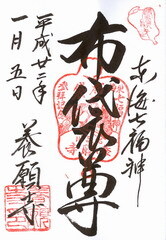 東海七福神
布袋尊
平成廿三年
一月五日
養願寺